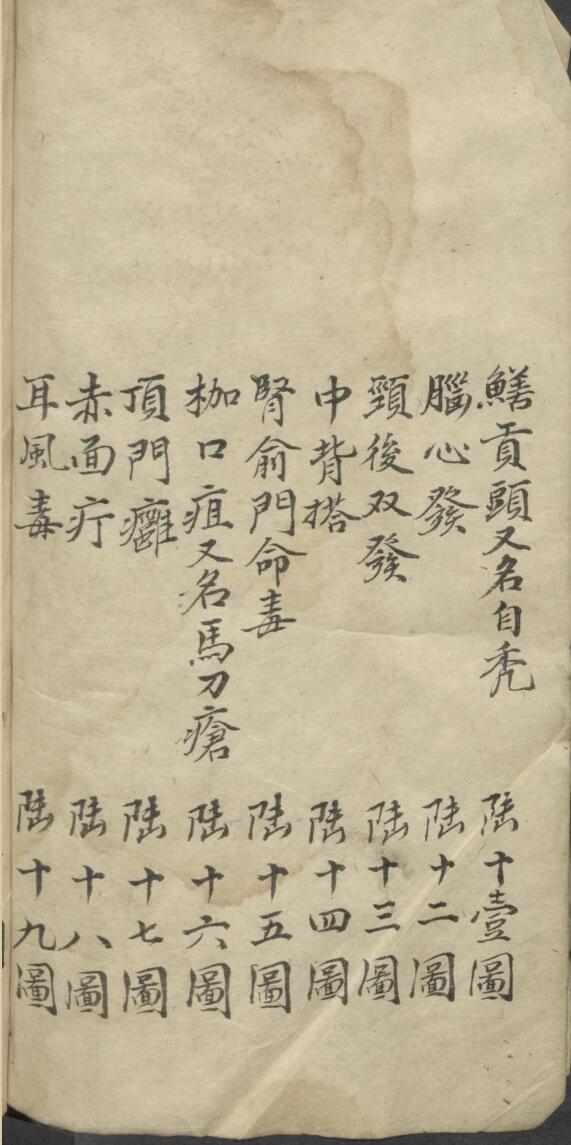 鱔貢頭又名自秃 陆十壹圖
腦心發 陆十二圖
頸後双發 陆十三圖
中背搭 陆十四圖
腎俞門命毒 陆十五圖
枷口疽又名馬刀瘡 陆十六圖
頂門癰 陆十七圖
赤面疔 陆十八圖
耳風毒 陆十九圖